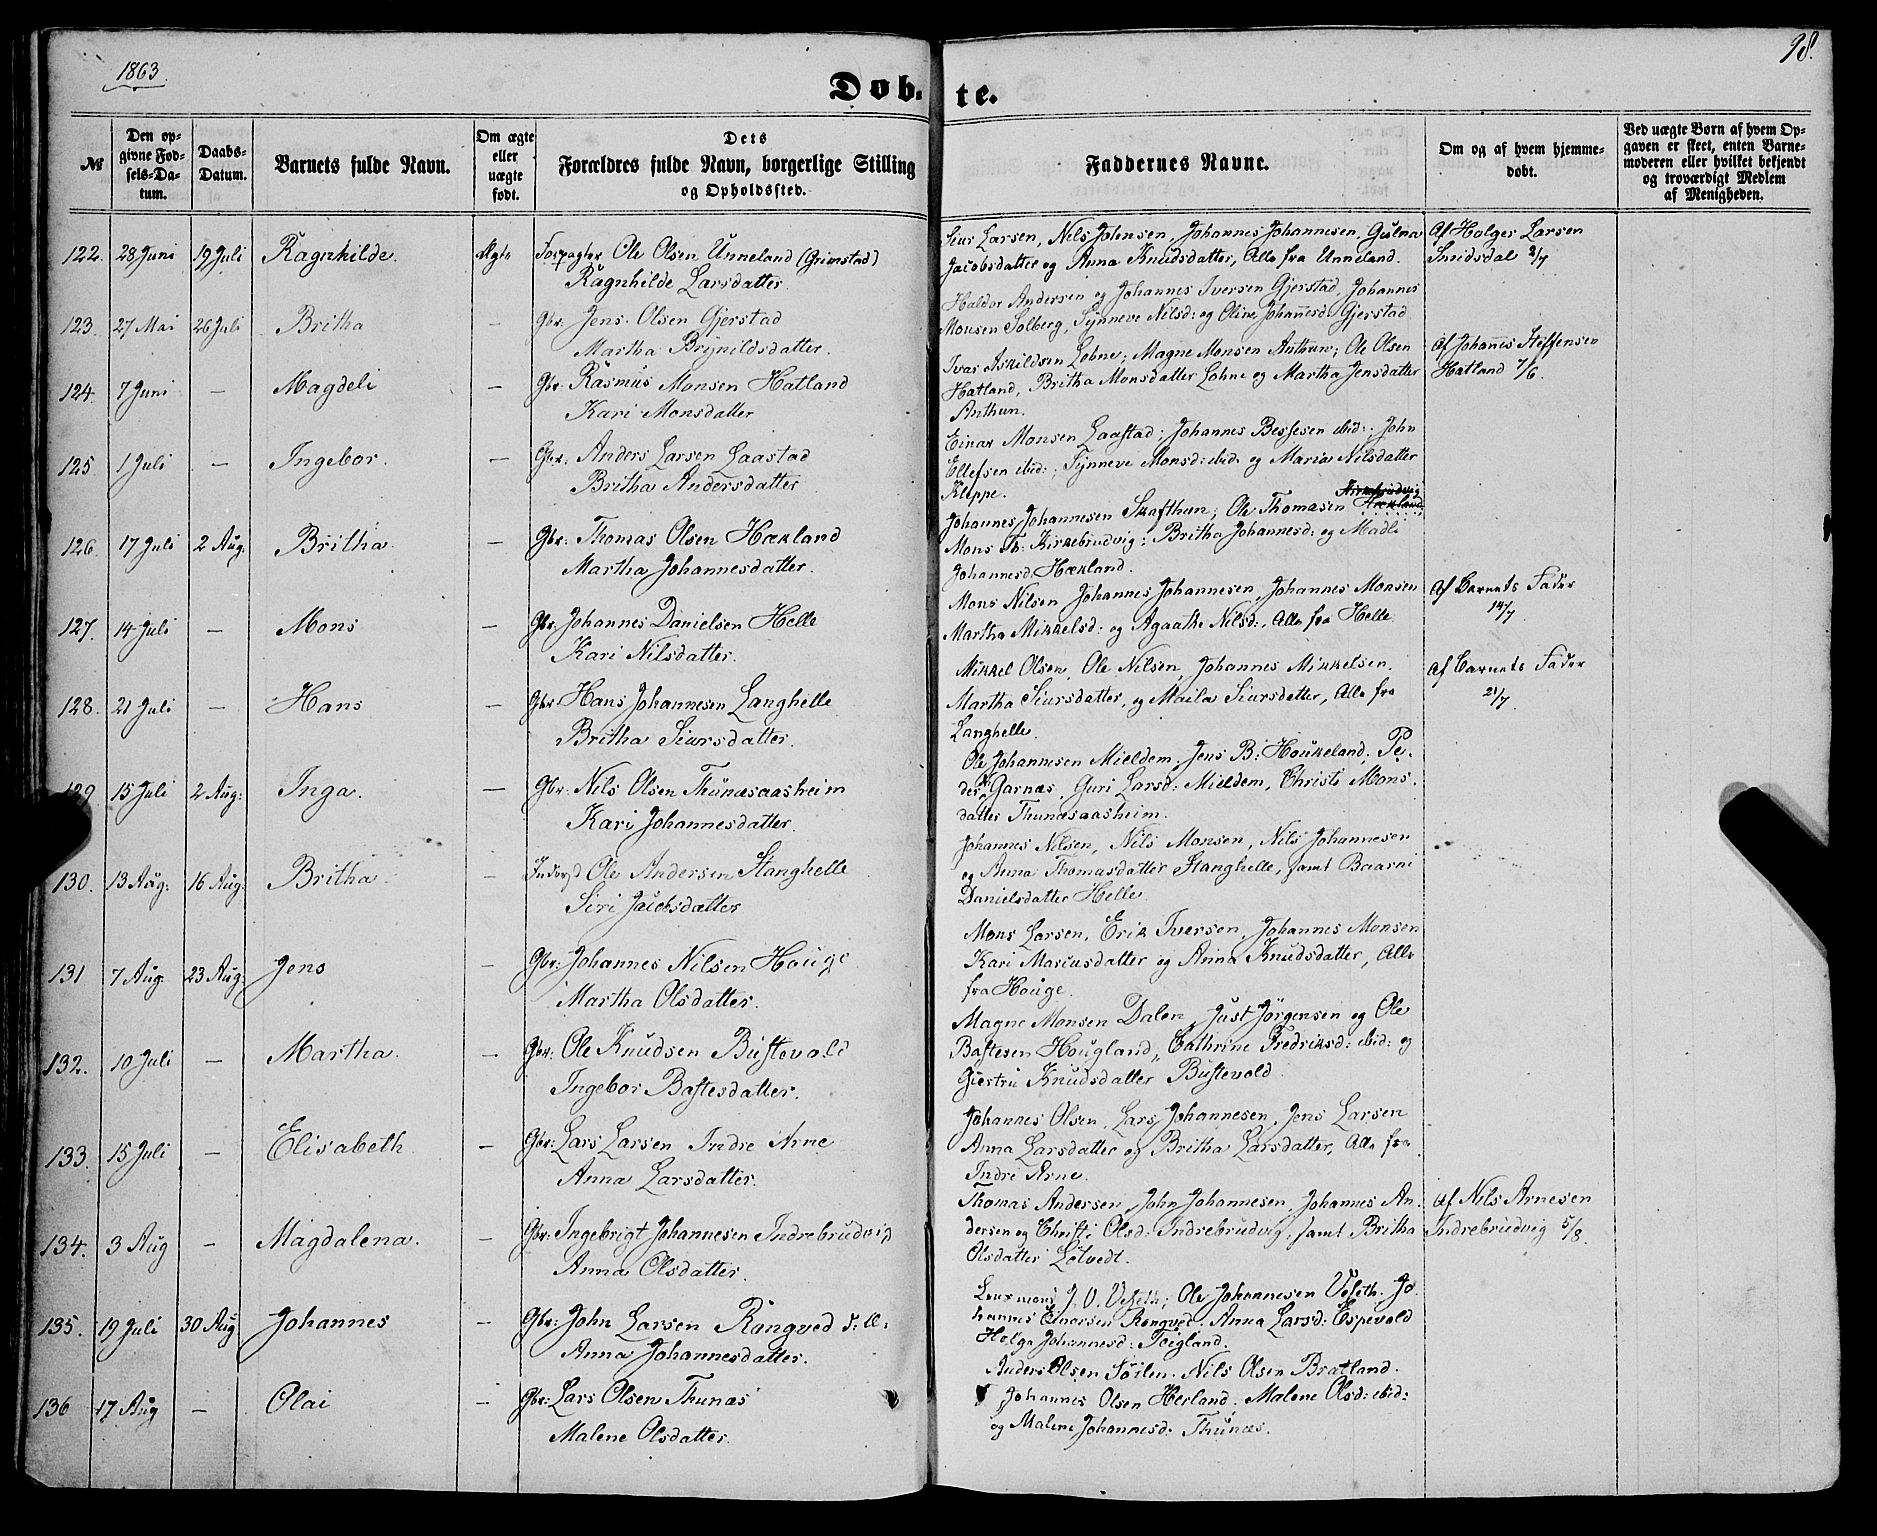 1863
98.
Døb- te.
№
Den op-
givne Fød-
sels-Da-
tum.
Daabs-
Datum.
Barnets fulde Navn.
Om ægte
eller
uægte
født.
Dets
Forældres fulde Navn, borgerlige Stilling
og Opholdssted.
Faddernes Navne.
Om og af hvem hjemme-
døbt.
Ved uægte Børn af hvem Op-
gaven er skeet, enten Barne-
moderen eller hvilket bekjendt
og troværdigt Medlem
af Menigheden.
122. 28 Juni 19 Juli Ragnhilde. Ægte Forpagter Ole Olsen Unneland (Grimstad)
Ragnhilde Larsdatter.
Siur Larsen, Nils Johnsen, Johannes Johannesen, Gulma
Jacobsdatter og Anna Knudsdatter, Alle fra Unneland.
Af Holger Larsen
Smidsdal 2/7
123. 27 Mai 26 Juli Britha — Gbr. Jens Olsen Gjerstad
Martha Brynildsdatter.
Haldor Andersen og Johannes Iversen Gjerstad, Johannes
Monsen Solberg, Synneve Nilsd: og Oline Johannesd Gjerstad
124. 7 Juni — Magdeli — Gbr. Rasmus Monsen Hatland
Kari Monsdatter
Ivar Askildsen Lohne; Magne Monsen Anthun; Ole Olsen
Hatland, Britha Monsdatter Lohne og Martha Jensdatter
Anthun.
Af Johannes Steffensen
Hatland 7/6.
125. 1 Juli — Ingebor. — Gbr: Anders Larsen Laastad
Britha Andersdatter
Einar Monsen Laastad; Johannes Bessesen ibid:; John
Ellefsen ibid:; Synneve Monsd: ibid: og Maria Nilsdatter
Kleppe.
126. 17 Juli 2 Aug. Britha. — Gbr: Thomas Olsen Hækland
Martha Johannesdatter.
Johannes Johannesen Skafthun; Ole Thomasen Hækland,
Mons Th: Kirkebrudvig; Britha Johannesd: og Madli
Johannesd. Hækland.
127. 14 Juli — Mons — Gbr. Johannes Danielsen Helle
Kari Nilsdatter.
Mons Nilsen, Johannes Johannesen, Johannes Monsen
Martha Mikkelsd: og Agaathe Nilsd:, Alle fra Helle.
Af Barnets Fader
14/7.
128. 21 Juli — Hans — Gbr Hans Johannesen Langhelle
Britha Siursdatter.
Mikkel Olsen, Ole Nilsen, Johannes Mikkelsen.
Martha Siursdatter, og Maila Siursdatter, Alle fra
Langhelle.
Af Barnets Fader
21/7.
129 15 Juli 2 Aug: Inga. — Gbr: Nils Olsen Thunæsaasheim
Kari Johannesdatter.
Ole Johannesen Mieldem, Jens B: Houkeland; Pe-
der Garnæs, Guri Larsd: Mieldem, Christi Mons-
datter Thunæsaasheim.
130. 13 Aug: 16 Aug: Britha. — Inderst Ole Andersen Stanghelle
Siri Jacobsdatter
Johannes Nilsen, Nils Monsen, Nils Johannesen
og Anna Thomasdatter Stanghelle, samt Baarni
Danielsdatter Helle.
131 7 Aug. 23 Aug: Jens — Gbr: Johannes Nilsen Houge
Martha Olsdatter.
Mons Larsen, Erik Iversen, Johannes Monsen
Kari Marcusdatter og Anna Knudsdatter, Alle
fra Houge.
132. 10 Juli — Martha. — Gbr: Ole Knudsen Bustevold
Ingebor Bastesdatter.
Magne Monsen Dalen, Just Jörgensen og Ole
Bastesen Hougland, Cathrine Fredriksd: ibid: og
Giertru Knudsdatter Bustevold
133. 15 Juli — Elisabeth — Gbr: Lars Larsen Indre Arne
Anna Larsdatter.
Johannes Olsen, Lars Johannesen, Jens Larsen
Anna Larsdatter og Britha Larsdatter, Alle fra
Indre Arne.
134. 3 Aug — Magdalena. — Gbr: Ingebrigt Johannesen Indrebrudvig
Anna Olsdatter.
Thomas Andersen, John Johannesen, Johannes An-
dersen og Christi Olsd: Indrebrudvig, samt Britha
Olsdatter Lötvedt.
Af Nils Arnesen
Indrebrudvig 5/8.
135. 19 Juli 30 Aug Johannes — Gbr: John Larsen Rongved
Anna Johannesdatter.
Lensmand J. O. Veseth; Ole Johannesen Veseth. Jo-
hannes Einarsen Rongved. Anna Larsd: Espevold
Helga Johannesd: Toigland.
136 17 Aug — Olai — Gbr: Lars Olsen Thunæs
Malene Olsdatter.
Anders Olsen Söilen. Nils Olsen Bratland.
Johannes Olsen Herland. Malene Olsd: ibid:
og Malene Johannesd: Thunæs.